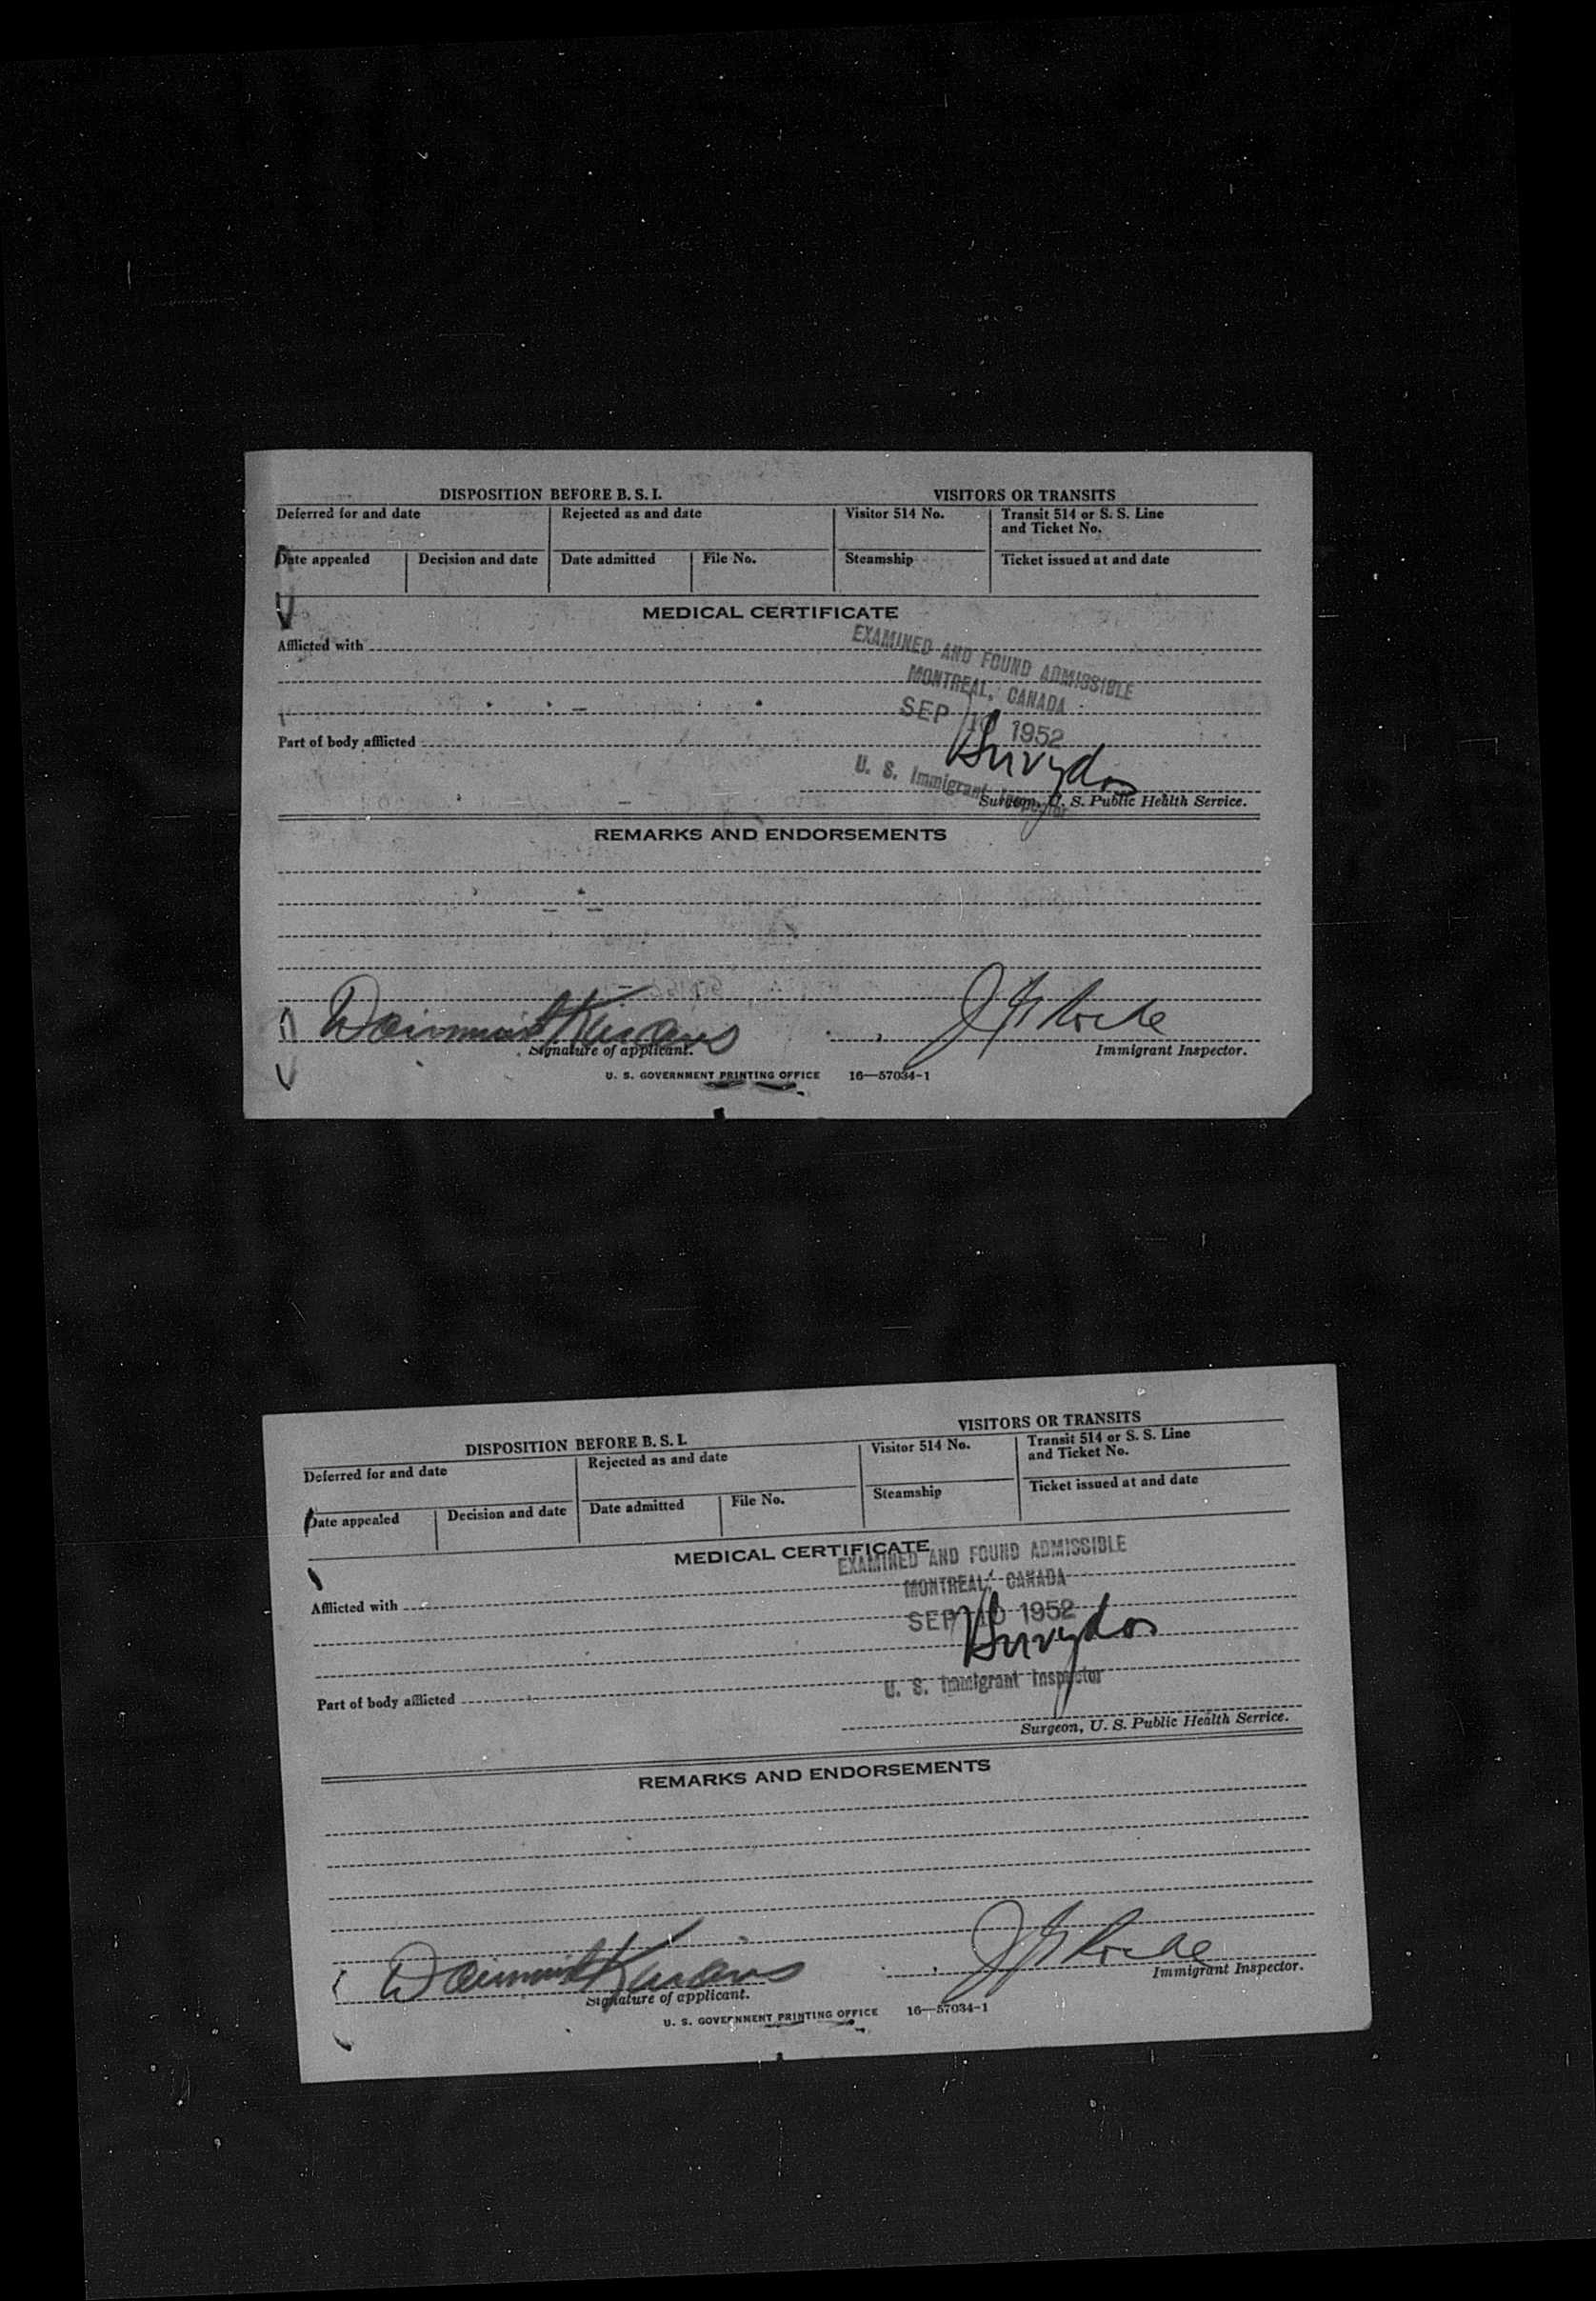 DISPOSITION BEFORE B. S. I.
VISITORS OR TRANSITS
Deferred for and date
Rejected as and date
Visitor 514 No.
Transit 514 or S. S. Line
and Ticket No.
Date appealed
Decision and date
Date admitted
File No.
Steamship
Ticket issued at and date
MEDICAL CERTIFICATE
Afflicted with
EXAMINED AND FOUND ADMISSIBLE
MONTREAL, CANADA
SEP 10 1952
Part of body afflicted
U. S. Immigrant Inspector
Surgeon, U. S. Public Health Service.
REMARKS AND ENDORSEMENTS
Signature of applicant.
Immigrant Inspector.
U. S. GOVERNMENT PRINTING OFFICE 16—57034-1
DISPOSITION BEFORE B. S. I.
VISITORS OR TRANSITS
Deferred for and date
Rejected as and date
Visitor 514 No.
Transit 514 or S. S. Line
and Ticket No.
Date appealed
Decision and date
Date admitted
File No.
Steamship
Ticket issued at and date
MEDICAL CERTIFICATE
EXAMINED AND FOUND ADMISSIBLE
MONTREAL, CANADA
Afflicted with
SEP 10 1952
U. S. Immigrant Inspector
Part of body afflicted
Surgeon, U. S. Public Health Service.
REMARKS AND ENDORSEMENTS
Signature of applicant.
Immigrant Inspector.
U. S. GOVERNMENT PRINTING OFFICE 16—57034-1